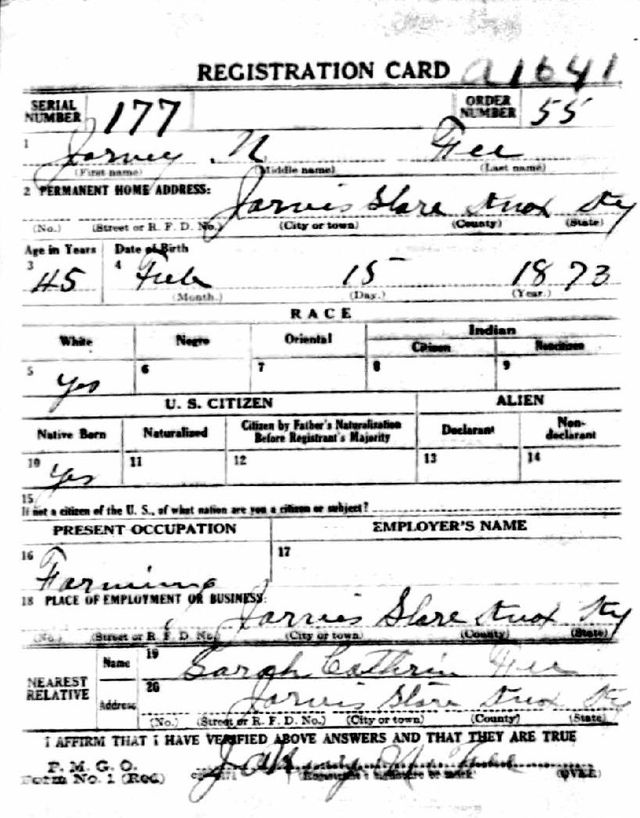 REGISTRATION CARD a1641
SERIAL NUMBER 177 ORDER NUMBER 55
1 Jarvey N Fee
(First name) (Middle name) (Last name)
2 PERMANENT HOME ADDRESS:
Jarvis Store Knox Ky
(No.) (Street or R. F. D. No.) (City or town) (County) (State)
Age in Years Date of Birth
3 45 4 Feb 15 1873
(Month.) (Day.) (Year.)
RACE
White Negro Oriental Indian
Citizen Noncitizen
5 Yes 6 7 8 9
U. S. CITIZEN ALIEN
Native Born Naturalized Citizen by Father's Naturalization Before Registrant's Majority Declarant Non-declarant
10 Yes 11 12 13 14
15
If not a citizen of the U. S., of what nation are you a citizen or subject?
PRESENT OCCUPATION EMPLOYER'S NAME
16 Farming 17
18 PLACE OF EMPLOYMENT OR BUSINESS:
Jarvis Store Knox Ky
(No.) (Street or R. F. D. No.) (City or town) (County) (State)
NEAREST RELATIVE Name 19 Sarah Cathrin Fee
Address 20 Jarvis Store Knox Ky
(No.) (Street or R. F. D. No.) (City or town) (County) (State)
I AFFIRM THAT I HAVE VERIFIED ABOVE ANSWERS AND THAT THEY ARE TRUE
P. M. G. O.
Form No. 1 (Red) (Registrant's signature or mark) (OVER)